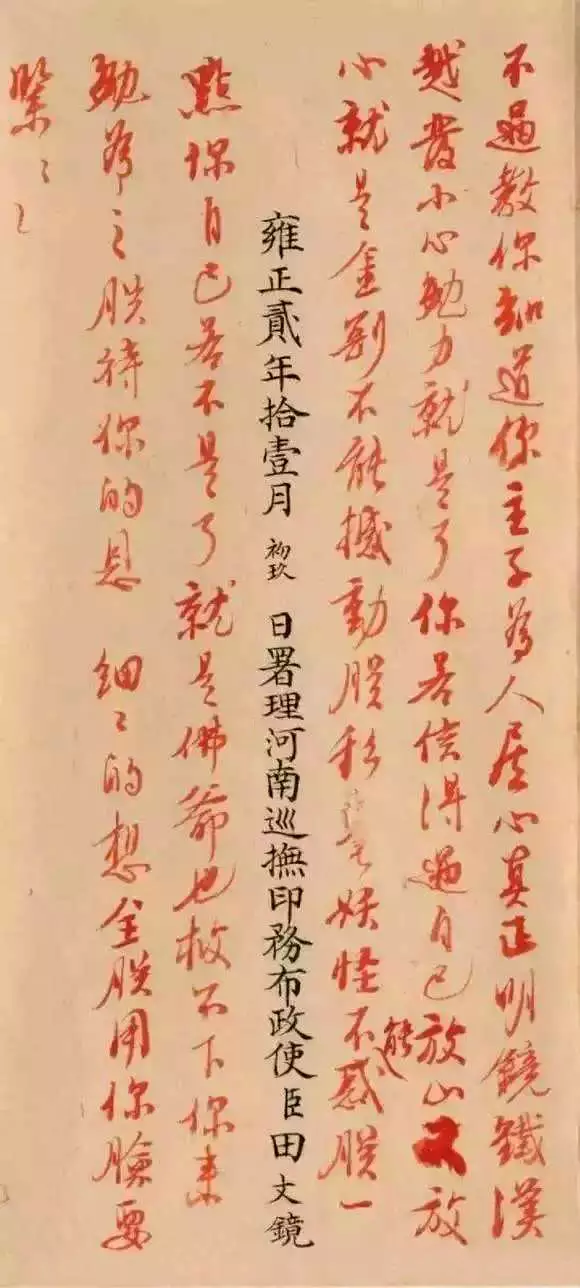 不過教你知道你主子為人居心真正明鏡鐵漢
越發小心勉力就是了你若信得過自己放心又放
心就是金剛不能撼動朕絲毫妖怪不能惑朕一
雍正貳年拾壹月初玖日署理河南巡撫印務布政使臣田文鏡
點你自己若不是了就是佛爺也救不下你來
勉為之朕待你的恩 細〻的想全朕用你臉要
緊〻〻